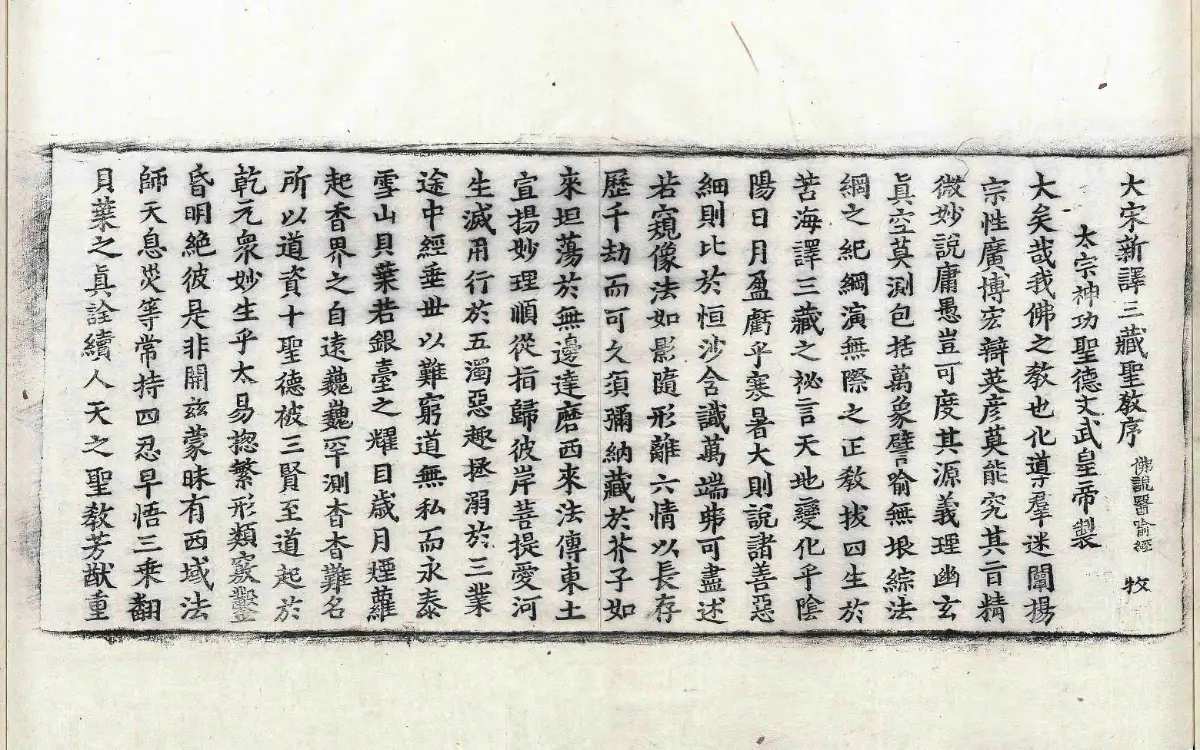 大宋新譯三藏聖教序 佛說醫喻經 牧
太宗神功聖德文武皇帝製
大矣哉我佛之教也化導羣迷闡揚
宗性廣博宏辯英彦莫能究其旨精
微妙說庸愚豈可度其源義理幽玄
眞空莫測包括萬象譬喻無垠綜法
綱之紀綱演無際之正教拔四生於
苦海譯三藏之祕言天地變化乎陰
陽日月盈虧乎寒暑大則說諸善惡
細則比於恒沙含識萬端弗可盡述
若窺像法如影隨形離六情以長存
歷千劫而可久須彌納藏於芥子如
來坦蕩於無邊達磨西來法傳東土
宣揚妙理順從指歸彼岸菩提愛河
生滅用行於五濁惡趣拯溺於三業
途中經垂世以難窮道無私而永泰
雪山貝葉若銀臺之耀目歲月煙蘿
起香界之自遠巍巍罕測杳杳難名
所以道資十聖德被三賢至道起於
乾元衆妙生乎太易揔繁形類竅鑿
昏明絶彼是非開兹蒙昧有西域法
師天息灾等常持四忍早悟三乘翻
貝葉之眞詮續人天之聖教芳猷重